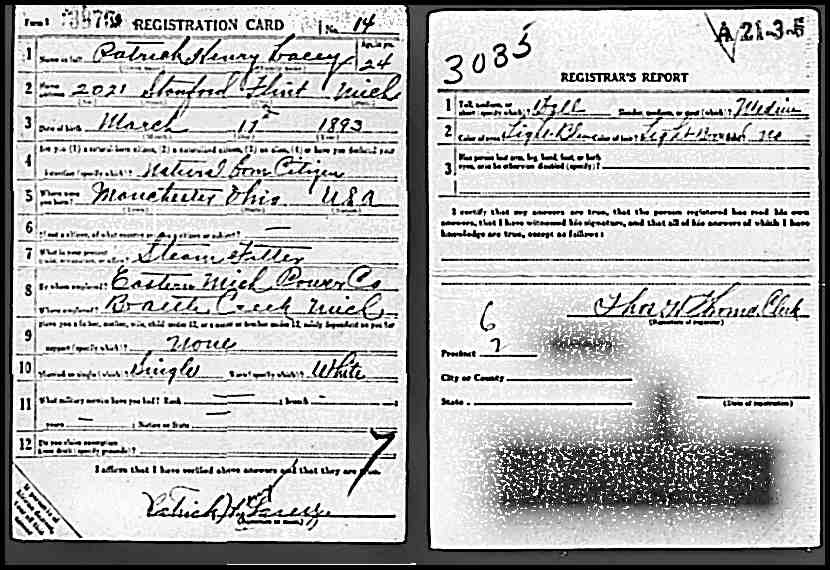 Form 1 3975 REGISTRATION CARD No. 14
1 Name in full Patrick Henry Lacey Age, in yrs. 24
2 Home address 2021 Stanford Flint Mich
3 Date of birth March 17 1893
4 Are you (1) a natural-born citizen, (2) a naturalized citizen, (3) an alien, (4) or have you declared your
intention (specify which)? Natural born Citizen
5 Where were you born? Manchester Ohio USA
6 If not a citizen, of what country are you a citizen or subject? —
7 What is your present trade, occupation, or office? Steam Fitter
8 By whom employed? Eastern Mich Power Co
Where employed? Battle Creek Mich
9 Have you a father, mother, wife, child under 12, or a sister or brother under 12, solely dependent on you for
support (specify which)? None
10 Married or single (which)? Single Race (specify which)? White
11 What military service have you had? Rank — ; branch —
years — ; Nation or State —
12 Do you claim exemption from draft (specify grounds)?
I affirm that I have verified above answers and that they are true.
7
Patrick H Lacey
(Signature or mark)
3085 A 21-3-5
REGISTRAR'S REPORT
1 Tall, medium, or short (specify which)? Tall Slender, medium, or stout (which)? Medium
2 Color of eyes? Light Bl Color of hair? Light Brown No
3 Has person lost arm, leg, hand, foot, or both
eyes, or is he otherwise disabled (specify)?
I certify that my answers are true, that the person registered has read his own
answers, that I have witnessed his signature, and that all of his answers of which I have
knowledge are true, except as follows:
(Signature of registrar)
6
Precinct 2
City or County
State
(Date of registration)